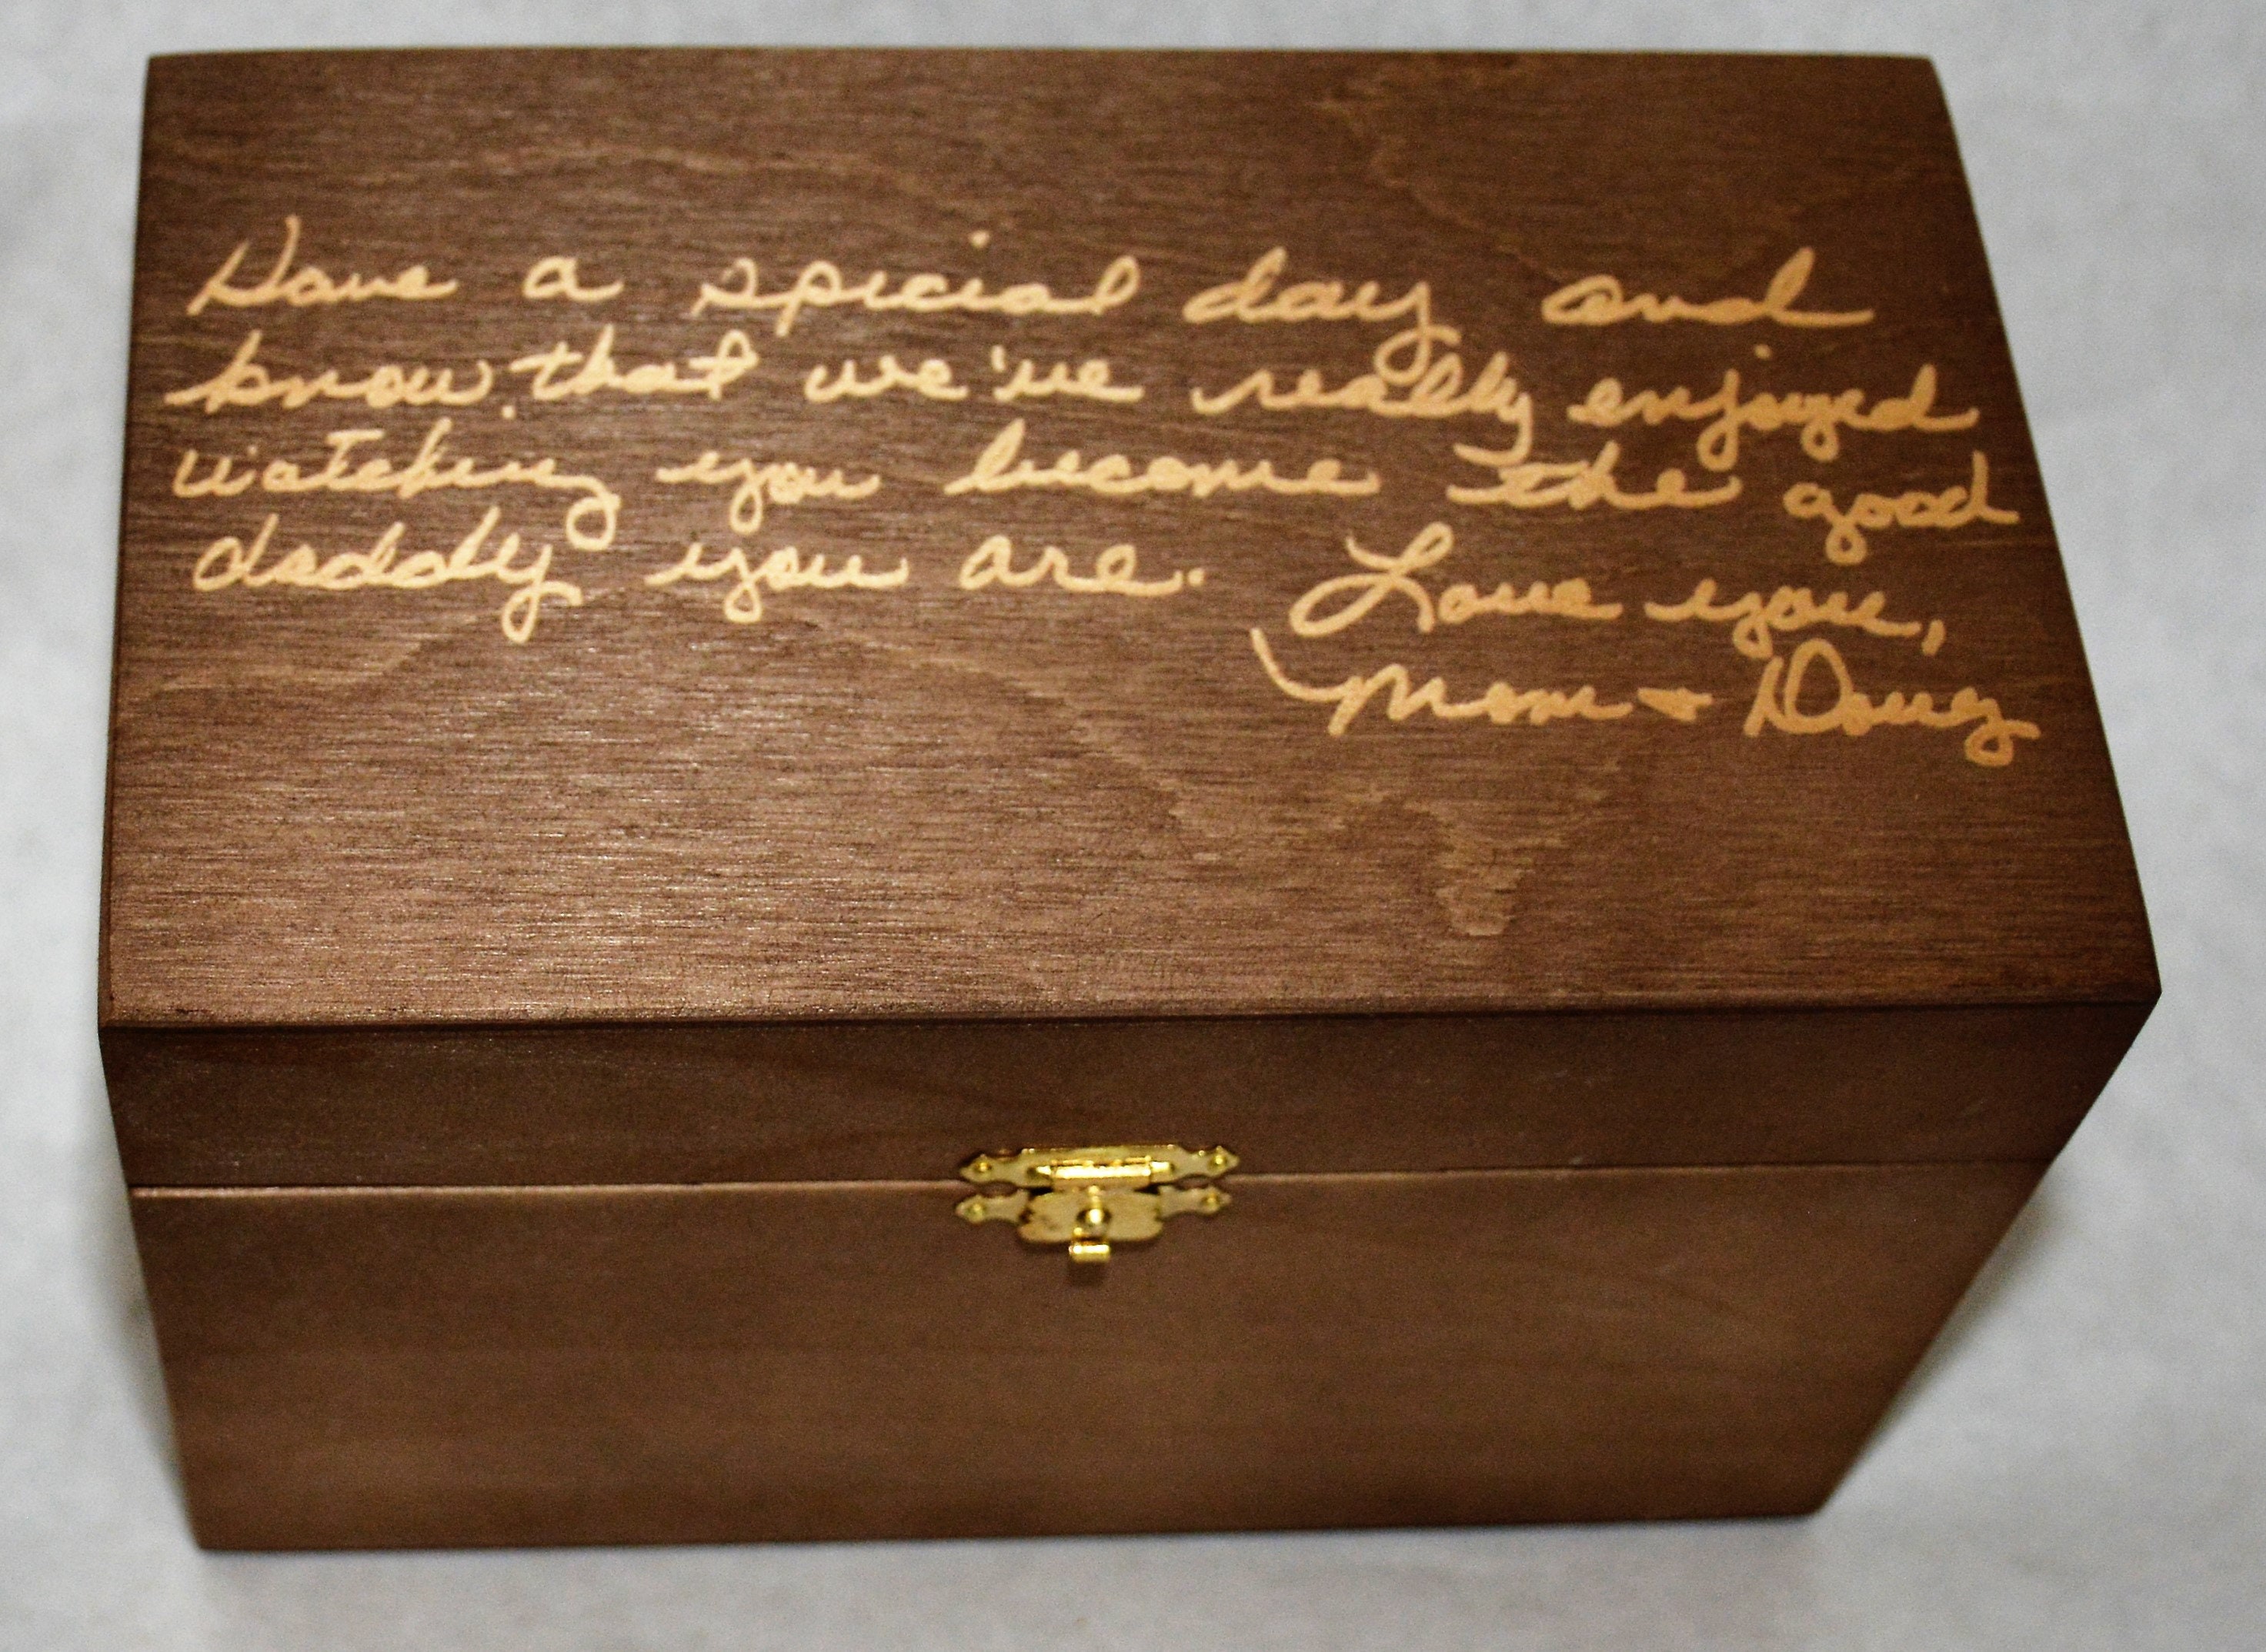 Have a special day and
know that we've really enjoyed
watching you become the good
daddy you are.
Love you,
Mom + Doug